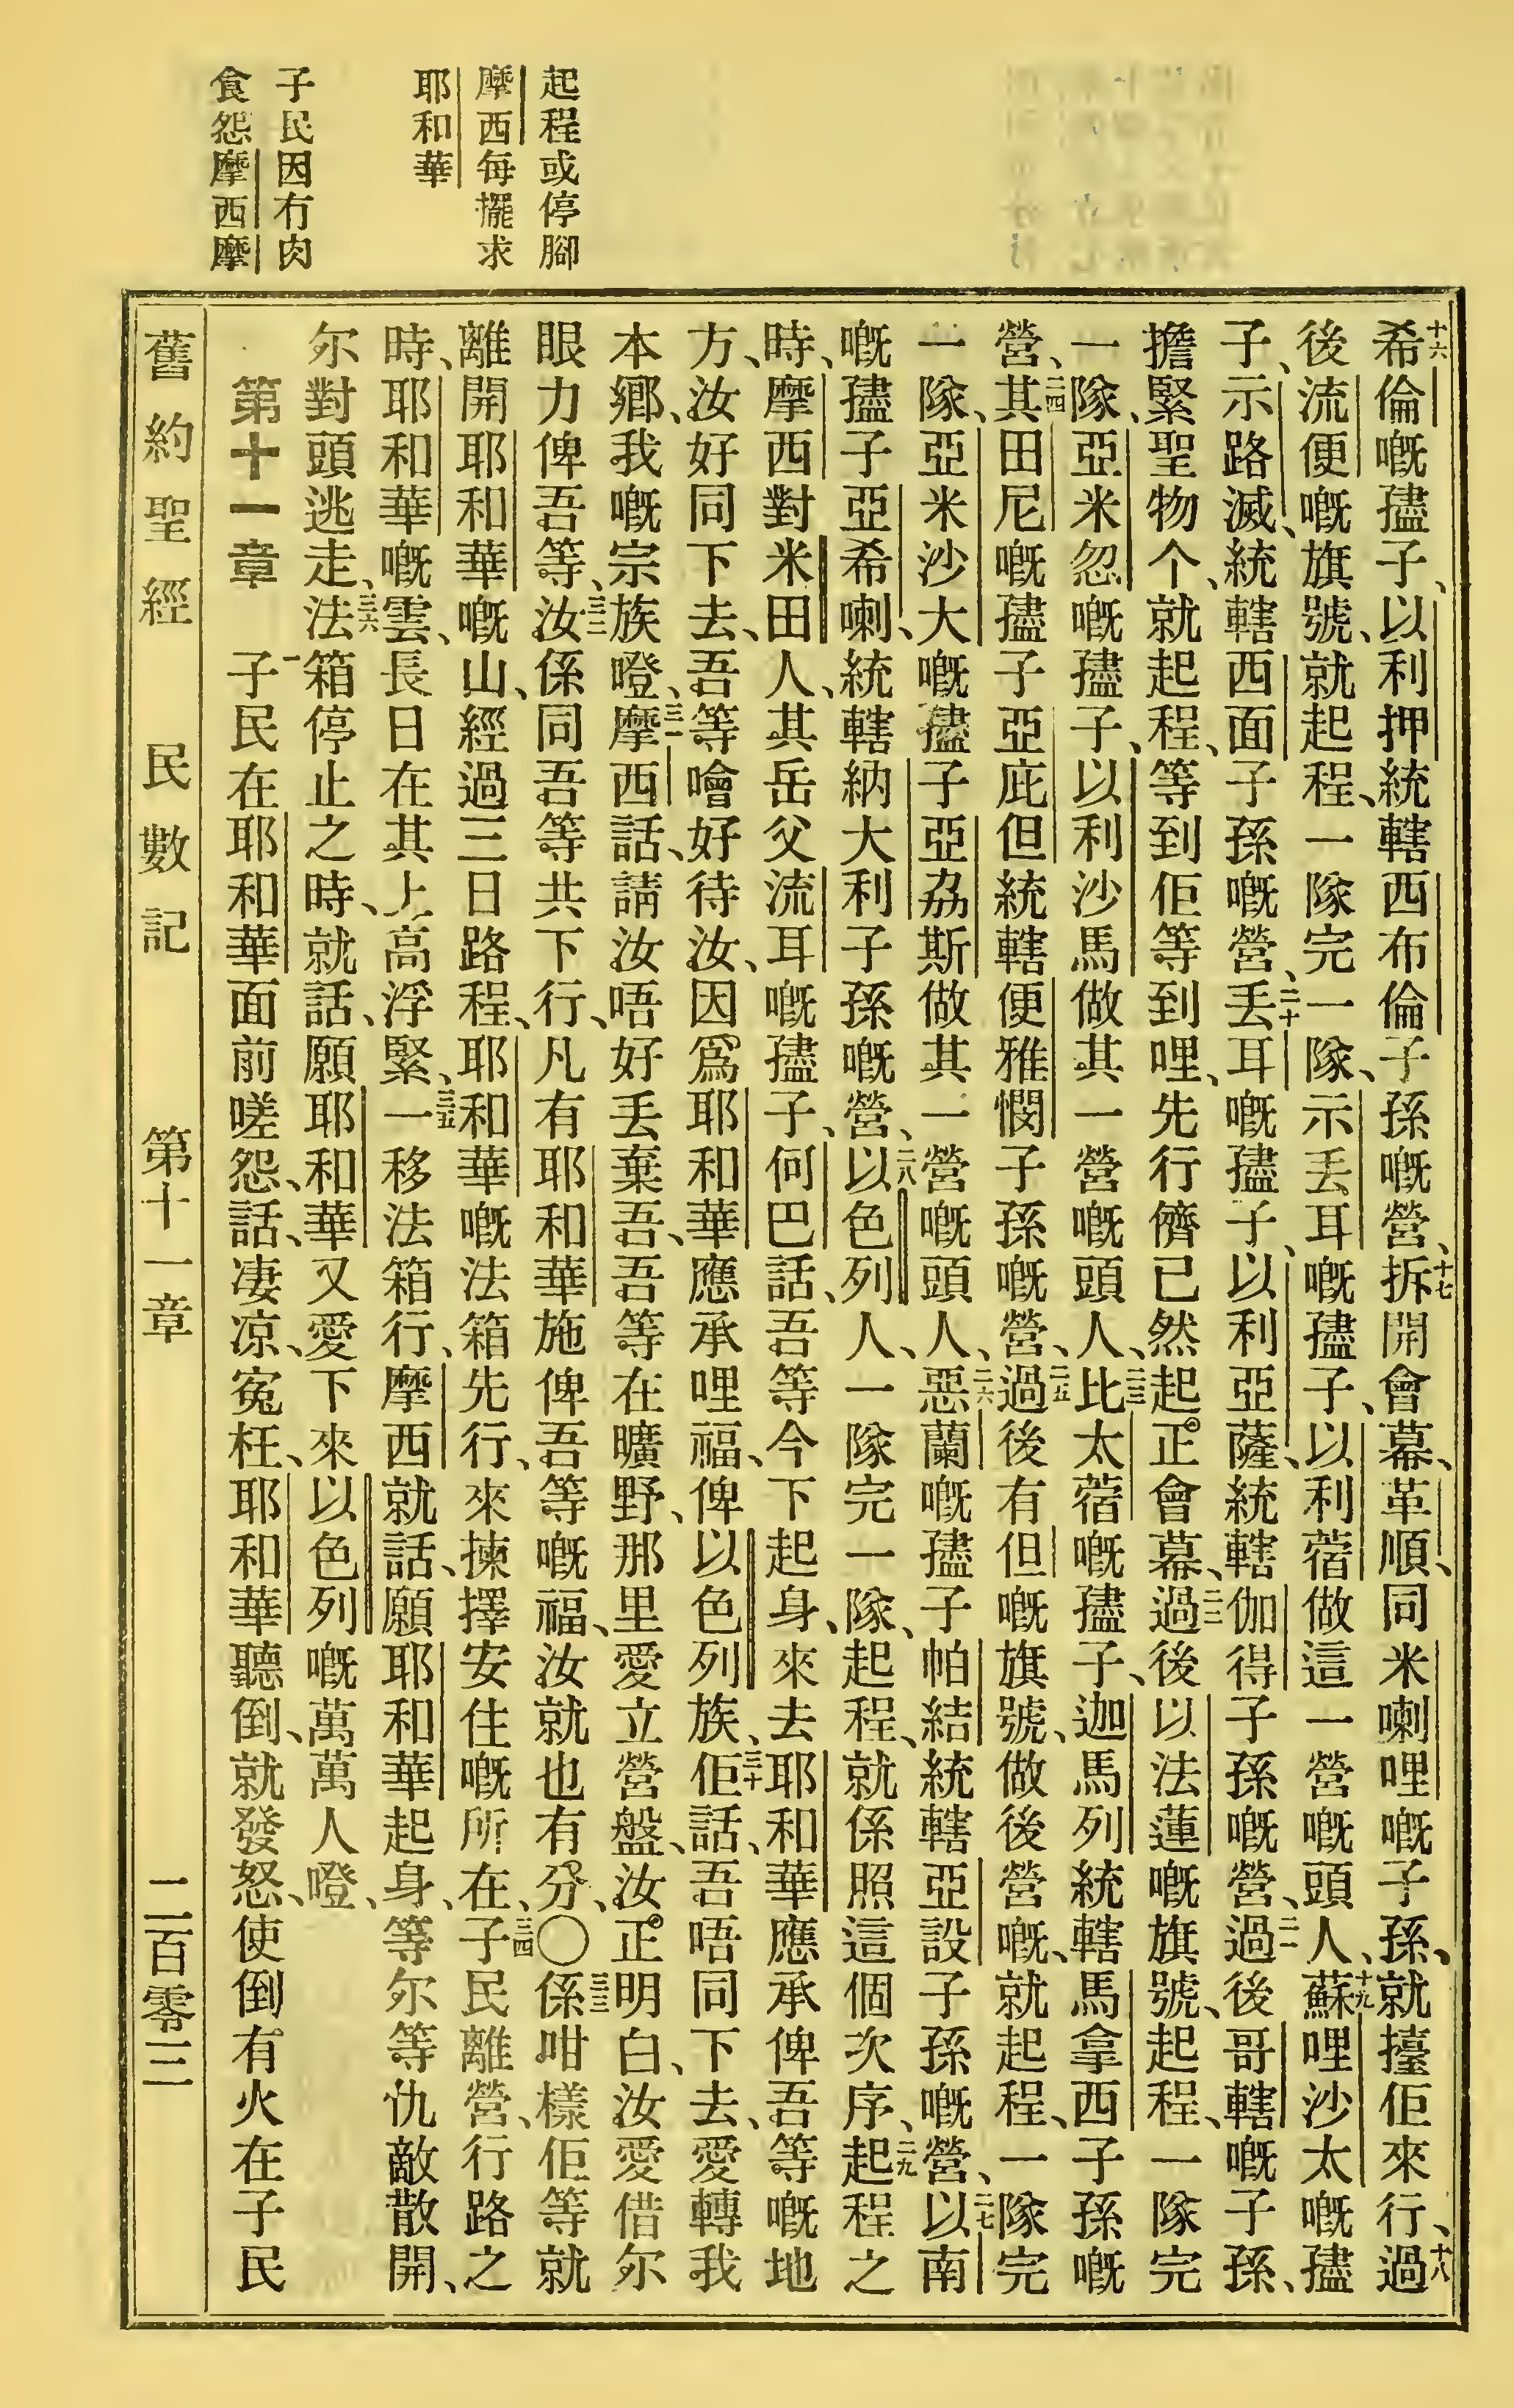 起程或停腳
摩西每擺求
耶和華
子民因冇肉
食怨摩西摩
十六希倫嘅孻子、以利押統轄西布倫子孫嘅營、十七拆開會幕、革順、同米喇哩嘅子孫、就擡佢來行、十八過
後流便嘅旗號、就起程、一隊完一隊、示丢耳嘅孻子、以利蓿做這一營嘅頭人、十九蘇哩沙太嘅孻
子、示路滅、統轄西面子孫嘅營、二十丢耳嘅孻子、以利亞薩、統轄伽得子孫嘅營、二一過後哥轄嘅子孫、
擔緊聖物个、就起程、等到佢等到哩、先行儕已然起正會幕、二二過後以法蓮嘅旗號、起程、一隊完
一隊、亞米忽嘅孻子、以利沙馬做其一營嘅頭人、二三比太蓿嘅孻子、迦馬列統轄馬拿西子孫嘅
營、二四其田尼嘅孻子亞庇但統轄便雅憫子孫嘅營、二五過後有但嘅旗號、做後營嘅、就起程、一隊完
一隊、亞米沙大嘅孻子亞劦斯做其一營嘅頭人、二六惡蘭嘅孻子帕結統轄亞設子孫嘅營、二七以南
嘅孻子亞希喇、統轄納大利子孫嘅營、二八以色列人、一隊完一隊、起程、就係照這個次序、二九起程之
時、摩西對米田人、其岳父流耳嘅孻子、何巴話、吾等今下起身、來去耶和華應承俾吾等嘅地
方、汝好同下去、吾等噲好待汝、因爲耶和華應承哩福、俾以色列族、三十佢話、吾唔同下去、愛轉我
本鄉、我嘅宗族噔、三一摩西話、請汝唔好丢棄吾、吾等在曠野、那里愛立營盤、汝正明白、汝愛借尔
眼力俾吾等、三二汝係同吾等共下行、凡有耶和華施俾吾等嘅福、汝就也有分、〇三三係咁樣佢等就
離開耶和華嘅山、經過三日路程、耶和華嘅法箱先行、來揀擇安住嘅所在、三四子民離營、行路之
時、耶和華嘅雲、長日在其上高浮緊、三五一移法箱行、摩西就話、願耶和華起身、等尔等仇敵散開、
尔對頭逃走、三六法箱停止之時、就話、願耶和華又愛下來以色列嘅萬萬人噔、
第十一章　一子民在耶和華面前嗟怨、話、凄凉、寃枉、耶和華聽倒、就發怒、使倒有火在子民
舊約聖經　民數記　第十一章　二百零三